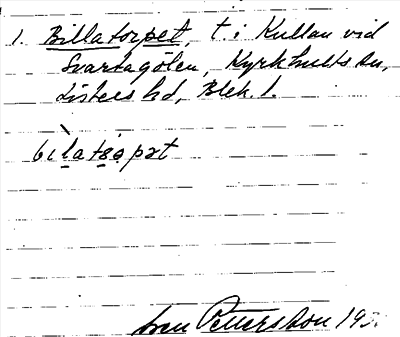 1. Billatorpet, t. i Kullan vid
Svartagölen, Kyrkhults sn,
Listers hd, Blek. l.
Sven Pettersson 193